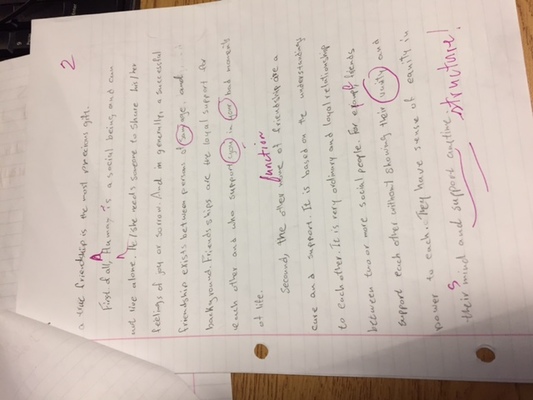 2
a true friendship is the most precious gift.
First of all, Human is a social being and can
not live alone. He/she needs someone to share his/her
feelings of joy or sorrow. And in generally, a successful
friendship exists between persons of age, and
background. Friendships are the loyal support for
each other and who support you in your bad moments
of life.
function
Second, the other name of friendship are a
care and support. It is based on the understanding
to each other. It is very ordinary and loyal relationship
between two or more social people. For friends
support each other without showing their and
power to each. They have sense of equity in
their mind and support anytime.
structure!